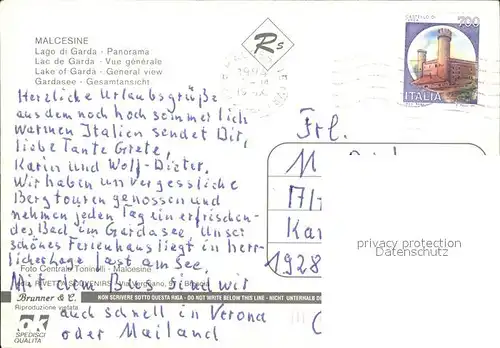 MALCESINE
Lago di Garda - Panorama
Lac de Garda - Vue générale
Lake of Garda - General view
Gardasee - Gesamtansicht
Rs
700
ITALIA
Herzliche Urlaubsgrüße
aus dem noch hochsommerlich
warmen Italien sendet Dir,
liebe Tante Grete,
Karin und Wolf-Dieter.
Wir haben unvergessliche
Bergtouren genossen und
nehmen jeden Tag ein erfrischen-
des Bad im Gardasee. Unser
schönes Ferienhaus liegt in herr-
licher Lage fast am See.
Mit dem Bus sind wir
auch schnell in Verona
oder Mailand
Frl.
M
Kar
1928
privacy protection
Datenschutz
Foto Centrale Toninelli - Malcesine
RIVETTA SOUVENIRS
Brunner & C.
NON SCRIVERE SOTTO QUESTA RIGA - DO NOT WRITE BELOW THIS LINE - NICHT UNTERHALB
Riproduzione vietata
SPEDISCI
QUALITÀ